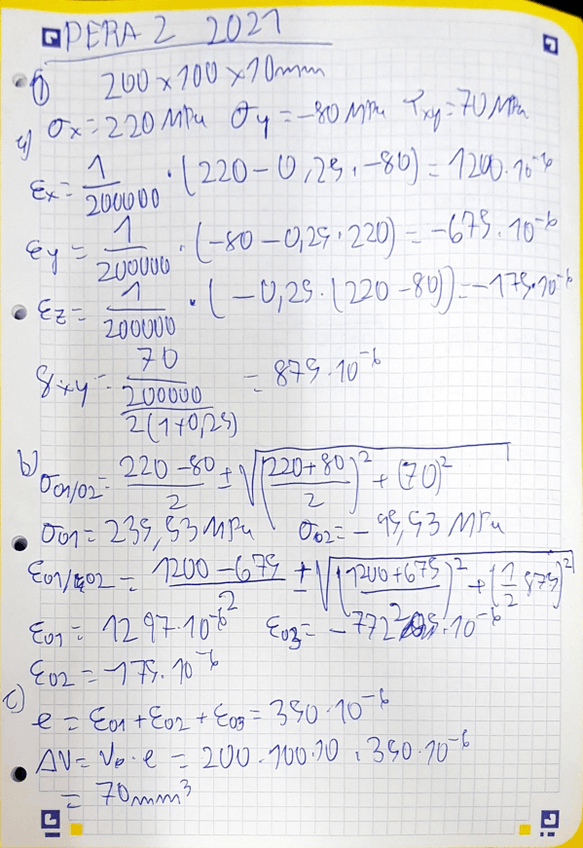 PERA 2 2021
1) 200 x 100 x 10mm
a) σx = 220 MPa σy = -80 MPa τxy = 70 MPa
εx = 1/200000 · (220 - 0,25 · -80) = 1200 · 10^-6
εy = 1/200000 · (-80 - 0,25 · 220) = -675 · 10^-6
εz = 1/200000 · (-0,25 · (220 - 80)) = -175 · 10^-6
γxy = 70/(200000/2(1+0,25)) = 875 · 10^-6
b) σ01/02 = (220 - 80)/2 ± √((220 + 80)/2)^2 + (70)^2
σ01 = 235,53 MPa σ02 = -95,53 MPa
ε01/02 = (1200 - 675)/2 ± √((1200 + 675)/2)^2 + (1/2 875)^2
ε01 = 1297 · 10^-6 ε03 = -772 · 10^-6
ε02 = -175 · 10^-6
c) e = ε01 + ε02 + ε03 = 350 · 10^-6
ΔV = V0 · e = 200 · 100 · 10 · 350 · 10^-6
= 70mm³